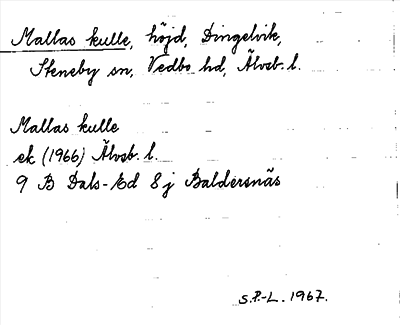 Mallas kulle, höjd, Dingelvik,
Steneby sn, Vedbo hd, Älvsb. l.
Mallas kulle
ek (1966) Älvsb. l.
9 B Dals-Ed 8 j Baldersnäs
S.P.-L. 1967.